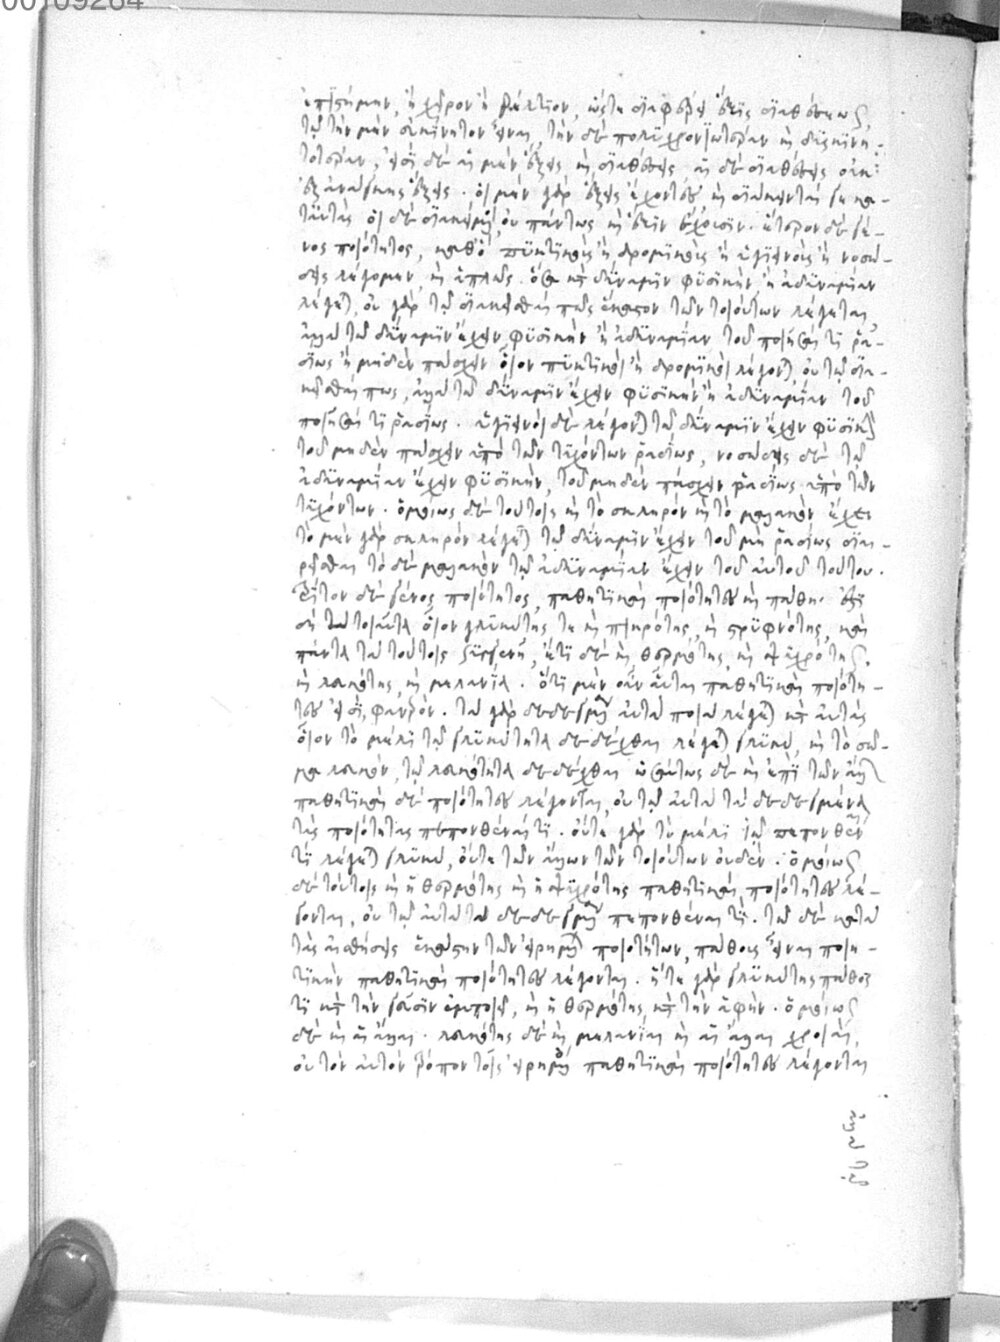 00109264
ἐπιστήμην, ἢ χεῖρον ἢ βέλτιον, ὥστε διαφέρει ἕξις διαθέσεως,
τῷ τὴν μὲν εὐκίνητον εἶναι, τὴν δὲ πολυχρονιωτέραν καὶ δυσκινη-
τοτέραν, εἰσὶ δὲ αἱ μὲν ἕξεις καὶ διαθέσεις, αἱ δὲ διαθέσεις οὐκ
ἐξ ἀνάγκης ἕξεις. οἱ μὲν γὰρ ἕξεις ἔχοντες καὶ διάκεινταί γε κα-
τὰ ταύτας οἱ δὲ διακείμενοι, οὐ πάντως καὶ ἕξιν ἔχουσιν. ἕτερον δὲ γέ-
νος ποιότητος, καθὸ πυκτικοὺς ἢ δρομικοὺς ἢ ὑγιεινοὺς ἢ νοσώ-
δεις λέγομεν, καὶ ἁπλῶς ὅσα κατὰ δύναμιν φυσικὴν ἢ ἀδυναμίαν
λέγεται, οὐ γὰρ τῷ διακεῖσθαί πως ἕκαστον τῶν τοιούτων λέγεται,
ἀλλὰ τῷ δύναμιν ἔχειν φυσικὴν ἢ ἀδυναμίαν τοῦ ποιῆσαί τι ῥα-
δίως ἢ μηδὲν πάσχειν οἷον πυκτικοὶ ἢ δρομικοὶ λέγονται, οὐ τῷ δια-
κεῖσθαί πως, ἀλλὰ τῷ δύναμιν ἔχειν φυσικὴν ἢ ἀδυναμίαν τοῦ
ποιῆσαί τι ῥαδίως. ὑγιεινοὶ δὲ λέγονται τῷ δύναμιν ἔχειν φυσικὴν
τοῦ μηδὲν πάσχειν ὑπὸ τῶν τυχόντων ῥαδίως, νοσώδεις δὲ τῷ
ἀδυναμίαν ἔχειν φυσικὴν, τοῦ μηδὲν πάσχειν ῥαδίως ὑπὸ τῶν
τυχόντων. ὁμοίως δὲ τούτοις καὶ τὸ σκληρὸν καὶ τὸ μαλακὸν ἔχει
τὸ μὲν γὰρ σκληρὸν λέγεται τῷ δύναμιν ἔχειν τοῦ μὴ ῥαδίως διαι-
ρεῖσθαι τὸ δὲ μαλακὸν τῷ ἀδυναμίαν ἔχειν τοῦ αὐτοῦ τούτου.
τρίτον δὲ γένος ποιότητος, παθητικαὶ ποιότητες καὶ πάθη. ἐστὶ
δὴ τὰ τοιαῦτα οἷον γλυκύτης τε καὶ πικρότης, καὶ στρυφνότης, καὶ
πάντα τὰ τούτοις συγγενῆ, ἔτι δὲ καὶ θερμότης, καὶ ψυχρότης,
καὶ λευκότης, καὶ μελανία. ὅτι μὲν οὖν αὗται παθητικαὶ ποιότη-
τες εἰσὶ, φανερόν. τὰ γὰρ δεδεγμένα αὐτὰ ποιὰ λέγεται κατ' αὐτάς
οἷον τὸ μέλι τῷ γλυκύτητα δεδέχθαι λέγεται γλυκύ, καὶ τὸ σῶ-
μα λευκὸν, τῷ λευκότητα δεδέχθαι ὡσαύτως δὲ καὶ ἐπὶ τῶν ἄλλων
παθητικαὶ δὲ ποιότητες λέγονται, οὐ τῷ αὐτὰ τὰ δεδεγμένα
τὰς ποιότητας πεπονθέναι τι. οὔτε γὰρ τὸ μέλι τῷ πεπονθέναι
τι λέγεται γλυκύ, οὔτε τῶν ἄλλων τῶν τοιούτων οὐδέν. ὁμοίως
δὲ τούτοις καὶ ἡ θερμότης καὶ ἡ ψυχρότης παθητικαὶ ποιότητες λέ-
γονται, οὐ τῷ αὐτὰ τὰ δεδεγμένα πεπονθέναι τι. τῷ δὲ κατὰ
τὰς αἰσθήσεις ἑκάστην τῶν εἰρημένων ποιοτήτων, πάθους εἶναι ποιη-
τικὴν παθητικαὶ ποιότητες λέγονται. ἥτε γὰρ γλυκύτης πάθος
τι κατὰ τὴν γεῦσιν ἐμποιεῖ, καὶ ἡ θερμότης κατὰ τὴν ἁφήν. ὁμοίως
δὲ καὶ αἱ ἄλλαι. λευκότης δὲ καὶ μελανία καὶ αἱ ἄλλαι χροιαί,
οὐ τὸν αὐτὸν τρόπον τοῖς εἰρημένοις παθητικαὶ ποιότητες λέγονται
ἀλλὰ τῷ